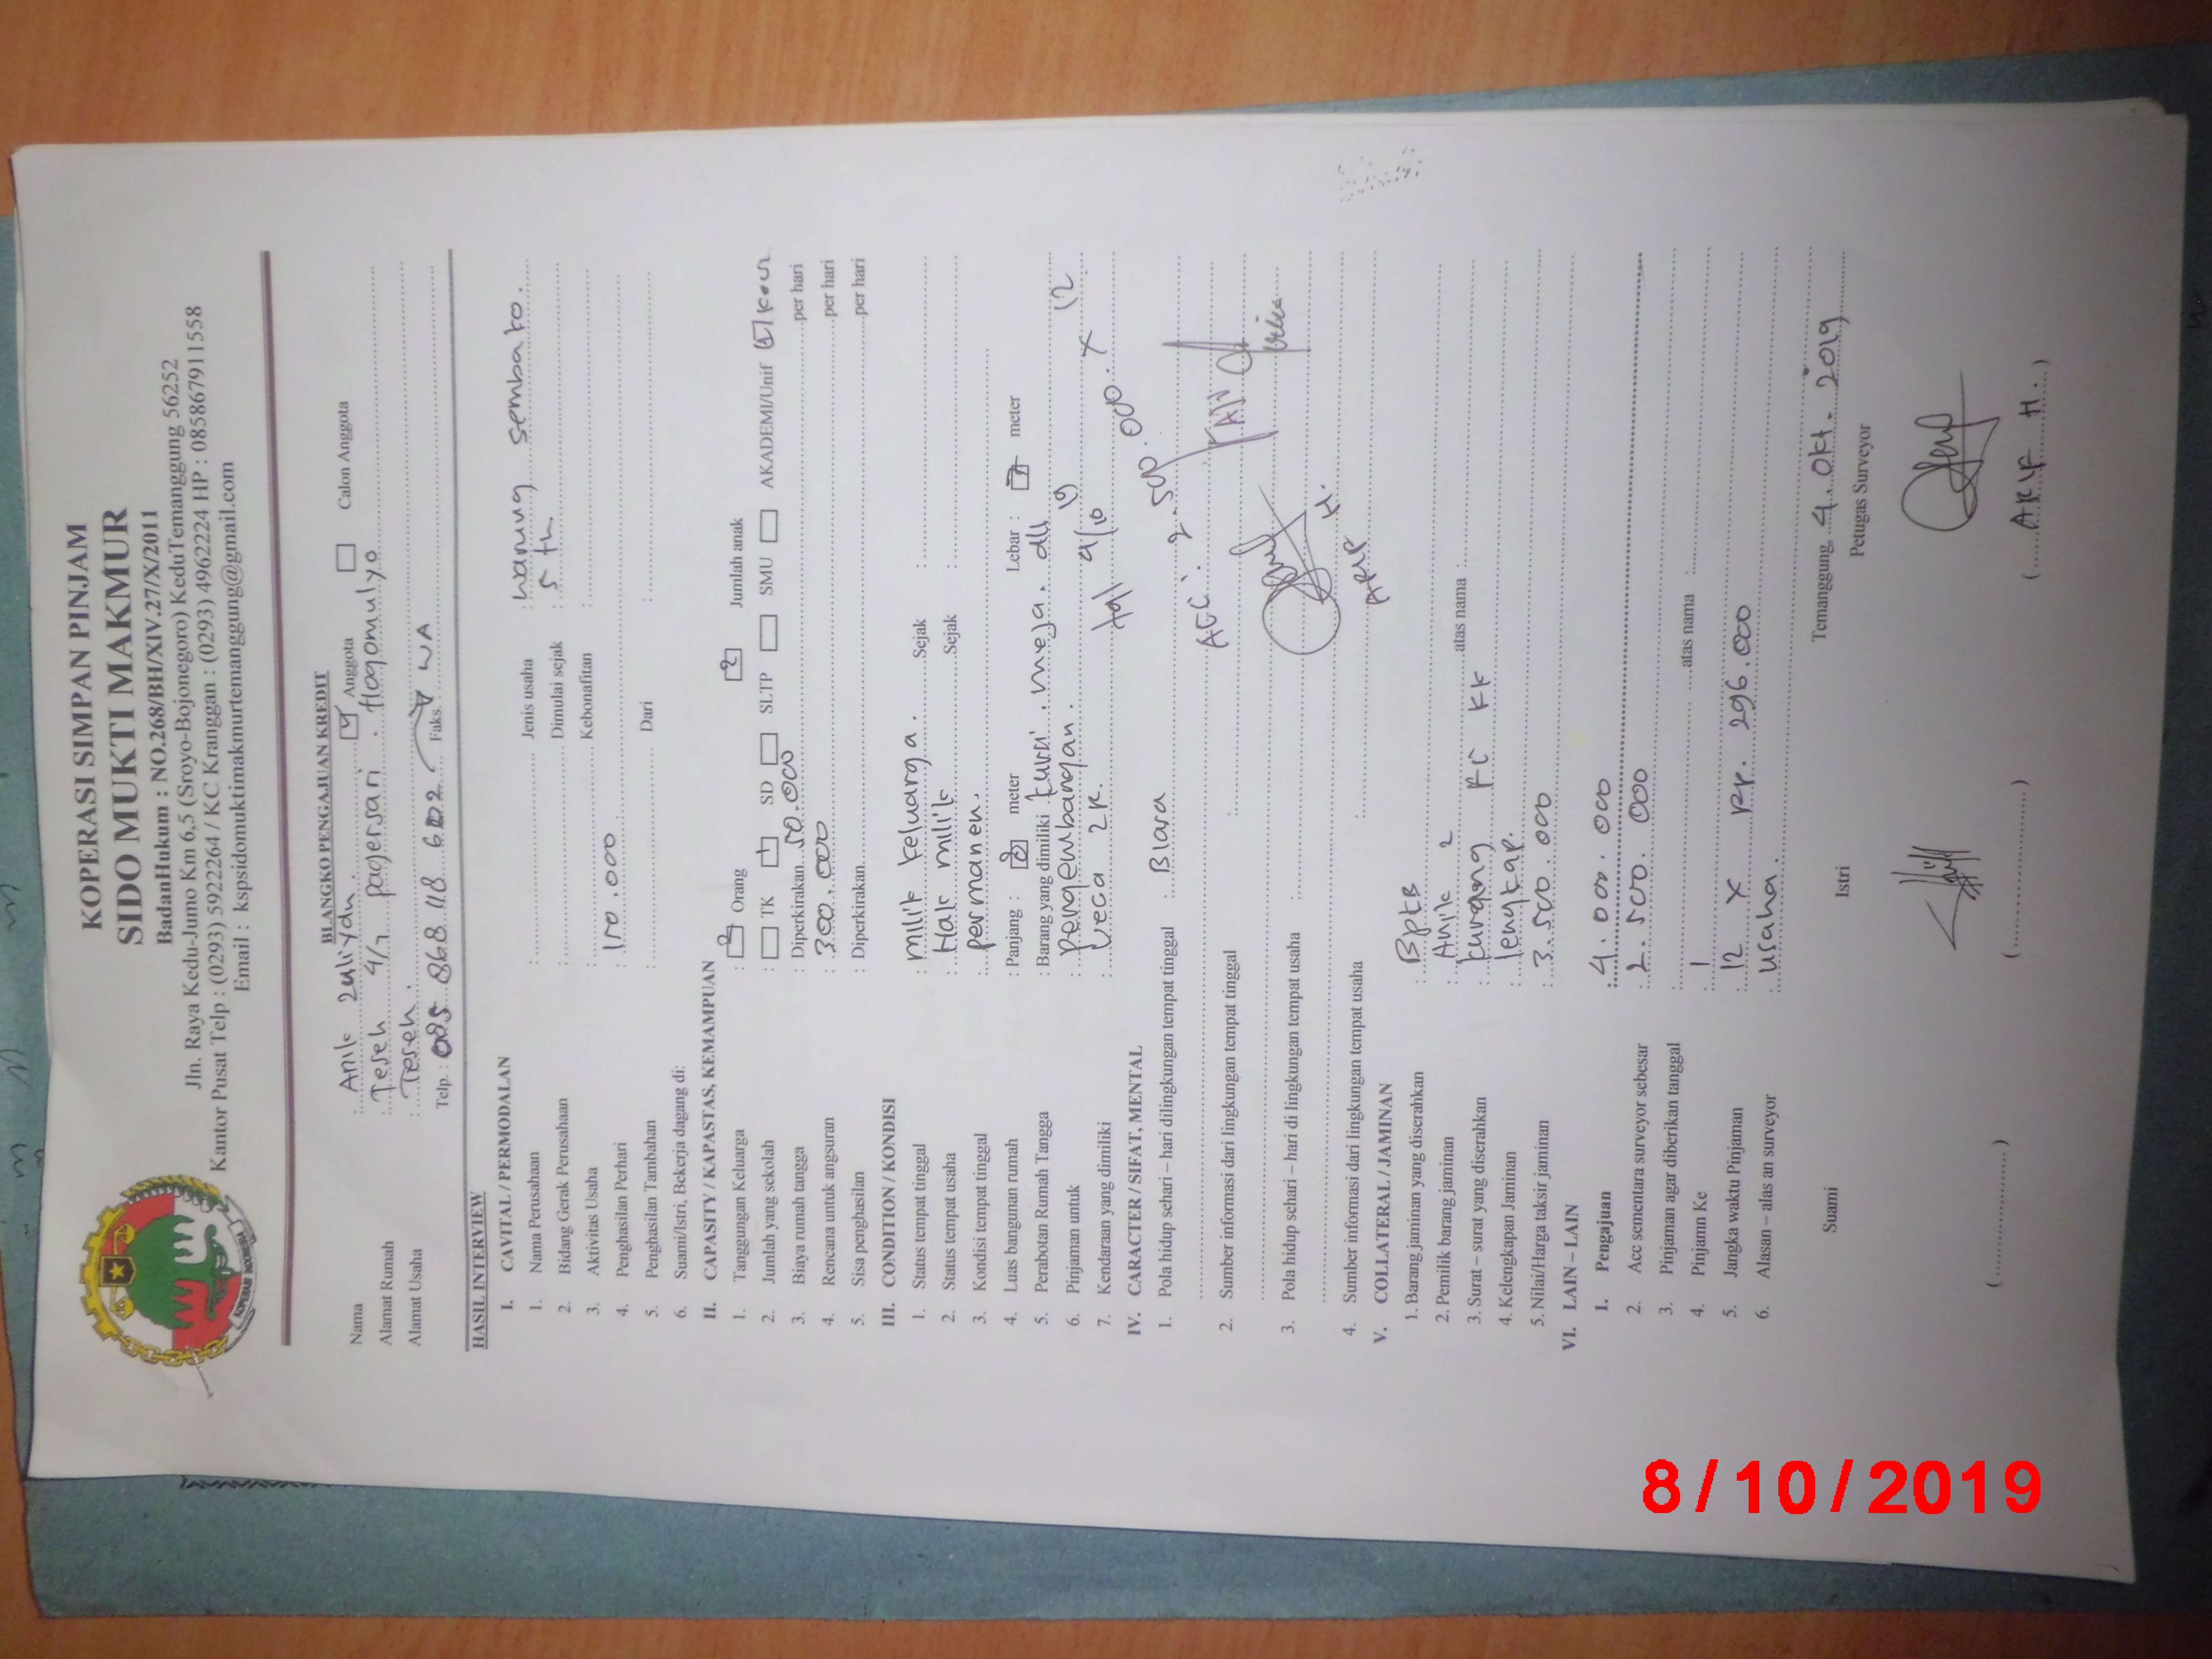 KOPERASI SIMPAN PINJAM
SIDO MUKTI MAKMUR
BadanHukum : NO.268/BH/XIV.27/X/2011
Jln. Raya Kedu-Jumo Km 6,5 (Sroyo-Bojonegoro) KeduTemanggung 56252
Kantor Pusat Telp : (0293) 5922264 / KC Kranggan : (0293) 4962224 HP : 085867911558
Email : kspsidomuktimakmurtemanggung@gmail.com
KOPERASI INDONESIA
BLANGKO PENGAJUAN KREDIT
Nama : Anik Zuliyan. Anggota Calon Anggota
Alamat Rumah : Teseh 4/7 pagersari . tlogomulyo
Alamat Usaha : Teseh.
Telp. : Faks. WA
HASIL INTERVIEW
I. CAVITAL / PERMODALAN
1. Nama Perusahaan : Jenis usaha : warung sembako.
2. Bidang Gerak Perusahaan : Dimulai sejak : 5 th.
3. Aktivitas Usaha : Kebonafitan :
4. Penghasilan Perhari : 150.000
5. Penghasilan Tambahan : Dari :
6. Suami/Istri, Bekerja dagang di:
II. CAPASITY / KAPASTAS, KEMAMPUAN
1. Tanggungan Keluarga : Orang 2 Jumlah anak
2. Jumlah yang sekolah : TK SD SLTP SMU AKADEMI/Unif
3. Biaya rumah tangga : Diperkirakan 50.000 per hari
4. Rencana untuk angsuran : 300.000 per hari
5. Sisa penghasilan : Diperkirakan per hari
III. CONDITION / KONDISI
1. Status tempat tinggal : milik keluarga. Sejak :
2. Status tempat usaha : Hak milik Sejak :
3. Kondisi tempat tinggal : permanen.
4. Luas bangunan rumah : Panjang : 8 meter Lebar : 7 meter
5. Perabotan Rumah Tangga : Barang yang dimiliki kursi, meja. dll
6. Pinjaman untuk : pengembangan.
7. Kendaraan yang dimiliki : veca 2R.
IV. CARACTER / SIFAT, MENTAL
1. Pola hidup sehari – hari dilingkungan tempat tinggal : Biasa
2. Sumber informasi dari lingkungan tempat tinggal :
3. Pola hidup sehari – hari di lingkungan tempat usaha :
4. Sumber informasi dari lingkungan tempat usaha :
Acc : 2.500.000 x 12
ARIF H.
V. COLLATERAL / JAMINAN
1. Barang jaminan yang diserahkan : BPKB
2. Pemilik barang jaminan : Anik Z
3. Surat – surat yang diserahkan : kurang FC KK atas nama :
4. Kelengkapan Jaminan : lengkap.
5. Nilai/Harga taksir jaminan : 3.500.000
VI. LAIN – LAIN
1. Pengajuan : 4.000.000
2. Acc sementara surveyor sebesar : 2.500.000
3. Pinjaman agar diberikan tanggal :
4. Pinjamn Ke : 1 atas nama :
5. Jangka waktu Pinjaman : 12 x Rp. 296.000
6. Alasan – alas an surveyor : usaha.
Temanggung, 4 Okt. 2019
Suami Istri Petugas Surveyor
(..............) (..............) ( ARIF H. )
8/10/2019